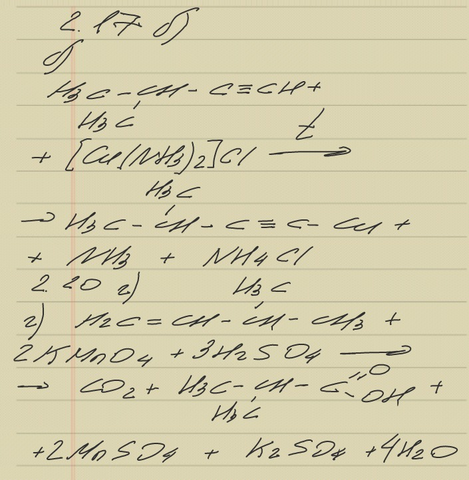 2.17 б)
б)
H3C - CH - C ≡ CH +
H3C
+ [Cu(NH3)2]Cl ⟶ t
H3C
→ H3C - CH - C ≡ C - Cu +
+ NH3 + NH4Cl
2.20 г) H3C
г) H2C = CH - CH - CH3 +
2KMnO4 + 3H2SO4 ⟶
→ CO2 + H3C - CH - C =O - OH +
H3C
+2MnSO4 + K2SO4 + 4H2O